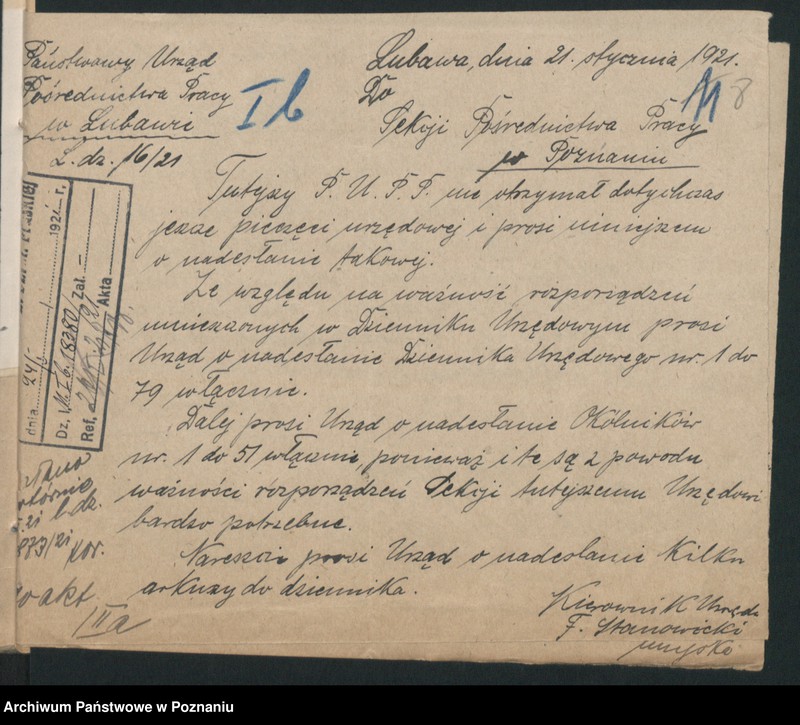 Państwowy Urząd
Pośrednictwa Pracy
w Lubawie
L. dz. 16/21
I b
Lubawa, dnia 21. stycznia 1921.
Do
8
Sekcji Pośrednictwa Pracy
w Poznaniu
Tutejszy P. U. P. P. nie otrzymał dotychczas
jeszcze pieczęci urzędowej i prosi niniejszem
o nadesłanie takowej.
Ze względu na ważność rozporządzeń
umieszczonych w Dzienniku Urzędowym prosi
Urząd o nadesłanie Dziennika Urzędowego nr. 1 do
79 włącznie.
Dalej prosi Urząd o nadesłanie Okólników
nr. 1 do 51 włącznie, ponieważ i te są z powodu
ważności rozporządzeń Sekcji tutejszemu Urzędowi
bardzo potrzebne.
Nareszcie prosi Urząd o nadesłanie kilku
arkuszy do dziennika.
Kierownik Urzędu
F. Stanowicki
dnia 24/ 1 1921 r.
Dz. 18380/ Zał. —
Ref. Akta
873/21
do akt
III a
Archiwum Państwowe w Poznaniu